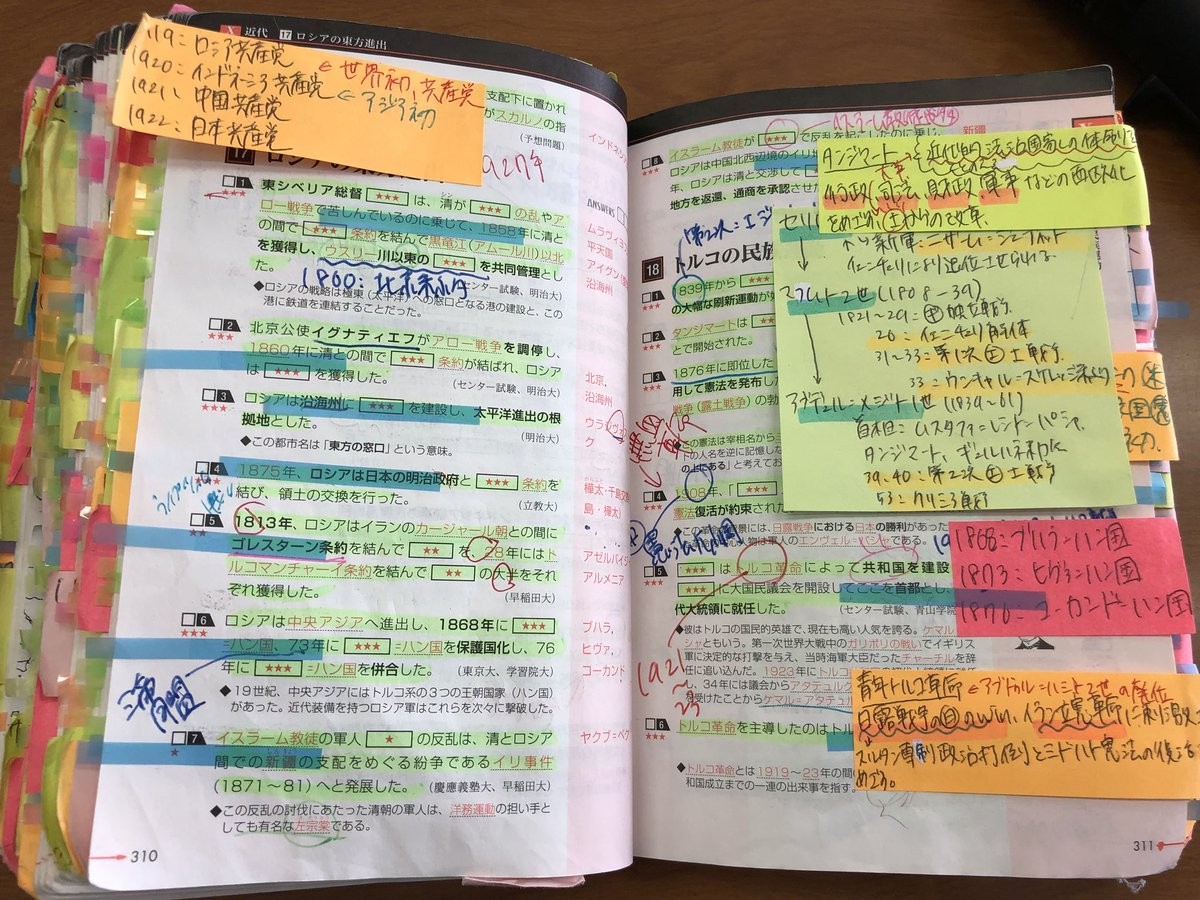 X 近代 17 ロシアの東方進出
1919:ロシア共産党
1920:インドネシア共産党 ← 世界初、共産党
1921:中国共産党 ← アジア初
1922:日本共産党
支配下に置かれ
がスカルノの指
(予想問題)
1927年
17
□1 東シベリア総督 ★★★ は、清が ★★★ の乱やア
★★★ ロー戦争で苦しんでいるのに乗じて、1858年に清と
の間で ★★★ 条約を結んで黒竜江(アムール川)以北
を獲得し、ウスリー川以東の ★★★ を共同管理とし
た。
(センター試験、明治大)
1860:北京条約
◆ロシアの戦略は極東(太平洋)への窓口となる港の建設と、この
港に鉄道を連結することだった。
□2 北京公使イグナティエフがアロー戦争を調停し、
★★★ 1860年に清との間で ★★★ 条約が結ばれ、ロシア
は ★★★ を獲得した。
(センター試験、明治大)
□3 ロシアは沿海州に ★★★ を建設し、太平洋進出の根
★★★ 拠地とした。
(明治大)
◆この都市名は「東方の窓口」という意味。
□4 1875年、ロシアは日本の明治政府と ★★★ 条約を
★★★ 結び、領土の交換を行った。
(立教大)
□5 1813年、ロシアはイランのカージャール朝との間に
★★ ゴレスターン条約を結んで ★★ を、28年にはト
ルコマンチャーイ条約を結んで ★★ の大半をそれ
ぞれ獲得した。
(早稲田大)
□6 ロシアは中央アジアへ進出し、1868年に ★★★
★★★ =ハン国、73年に ★★★ =ハン国を保護国化し、76
年に ★★★ =ハン国を併合した。
(東京大、学習院大)
◆19世紀、中央アジアにはトルコ系の3つの王朝国家(ハン国)
があった。近代装備を持つロシア軍はこれらを次々に撃破した。
□7 イスラーム教徒の軍人 ★ の反乱は、清とロシア
★ 間での新疆の支配をめぐる紛争であるイリ事件
(1871〜81)へと発展した。
(慶應義塾大、早稲田大)
◆この反乱の討伐にあたった清朝の軍人は、洋務運動の担い手と
しても有名な左宗棠である。
310
インドネシ
ANSWERS
ムラヴィヨ
平天国
アイグン
沿海州
北京、
沿海州
ウラ
ク
樺太・千島交
島・樺太)
アゼルバイジ
アルメニア
ブハラ,
ヒヴァ,
コーカンド
ヤクブ=ベク
□8 イスラーム教徒が ★★★ で反乱を起こしたのに乗じ、
★★★ ロシアは中国北西辺境のイリ地
年、ロシアは清と交渉して
地方を返還、通商を承認させた
新疆
18 トルコの民族
□1 1839年から ★★★
★★★ の大幅な刷新運動が
□2 タンジマートは
★★ とで開始された。
□3 1876年に即位した
★★★ 用して憲法を発布し
戦争(露土戦争)の勃
この憲法は宰相名から
下の人名を逆に記憶し
の上にある」と考えてお
□4 1908年、「
★★★ 憲法復活が約束された
背景には、日露戦争における日本の勝利があった
人物は軍人のエンヴェル=パシャである。
□5 ★★★ はトルコ革命によって共和国を建設
★★★ ★★★ に大国民議会を開設してここを首都とし、
代大統領に就任した。
(センター試験、青山学院
◆彼はトルコの国民的英雄で、現在も高い人気を誇る。ケマル
シャともいう。第一次世界大戦中のガリポリの戦いでイギリス
軍に決定的な打撃を与え、当時海軍大臣だったチャーチルを辞
任に追い込んだ。1923年にトルコ
し、34年には議会からアタテュルク
を受けたことからケマル=アタテュ
1921〜23
□6 トルコ革命を主導したのはトル
★★★
◆トルコ革命とは1919〜23年の間
和国成立までの一連の出来事を指す。
311
タンジマート → 近代的法治国家としての体制
行政、司法、財政、軍事などの西欧化
をめざす上からの改革。
セリム
↳ 新軍:ニザーム=ジェディット
イェニチェリにより退位させられる
マフムト2世(1808-39)
1821〜29:ギ独立戦争
26:イェニチェリ解体
31〜33:第1次エ土戦争
33:ウンキャル=スケレッシ条約
アブデュル=メジト1世(1839〜61)
首相:ムスタファ=レシト=パシャ
タンジマート、ギュルハネ勅令
39-40:第2次エ土戦争
53:クリミア戦争
1868:ブハラ=ハン国
1873:ヒヴァ=ハン国
1876:コーカンド=ハン国
青年トルコ革命 ← アブドゥル=ハミト2世の専位
日露戦争の日のwin、イラン立憲革命に刺激
スルタン専制政治打倒とミドハト憲法の復活
めざす。